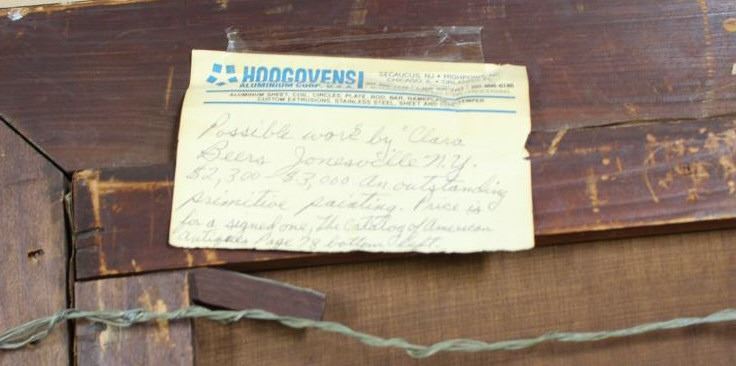 HOOGOVENS
ALUMINIUM CORP. U.S.A.
SECAUCUS, NJ •
CHICAGO, IL •
ALUMINUM SHEET, COIL, CIRCLES, PLATE, ROD, BAR,
CUSTOM EXTRUSIONS, STAINLESS STEEL, SHEET AND
Possible work by "Clara
Beers Jonesville N.Y.
$2,300 - $3,000 An outstanding
primitive painting. Price is
for a signed one, The Catalog of American
Antiques Page 78 bottom left.